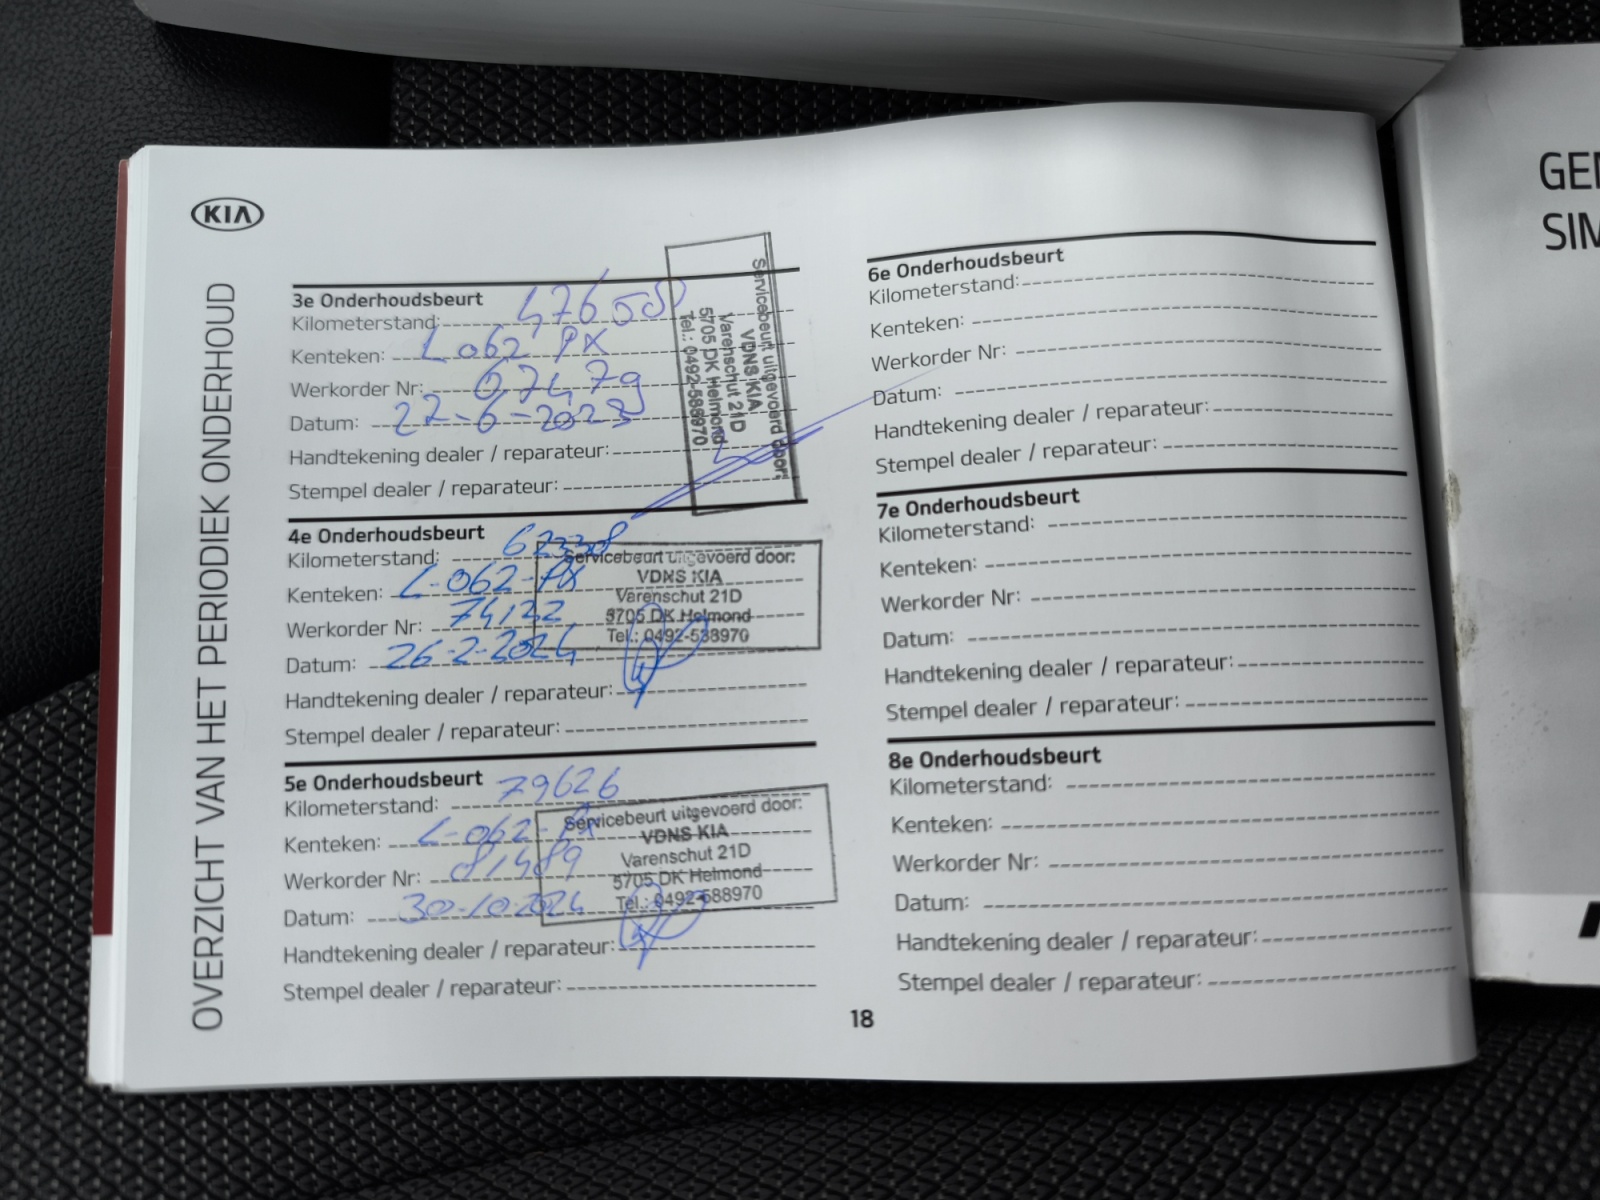 KIA
OVERZICHT VAN HET PERIODIEK ONDERHOUD
3e Onderhoudsbeurt
Kilometerstand:
Kenteken: L 062 PX
Werkorder Nr: 67479
Datum: 22-6-2023
Handtekening dealer / reparateur:
Stempel dealer / reparateur:
Servicebeurt uitgevoerd door:
VDNS KIA
Varenschut 21D
5705 DK Helmond
Tel.: 0492-588970
4e Onderhoudsbeurt
Kilometerstand: 62308
Kenteken: L-062-PX
Werkorder Nr: 74122
Datum: 26-2-2024
Handtekening dealer / reparateur:
Stempel dealer / reparateur:
Servicebeurt uitgevoerd door:
VDNS KIA
Varenschut 21D
5705 DK Helmond
Tel.: 0492-588970
5e Onderhoudsbeurt
Kilometerstand: 79626
Kenteken: L-062-PX
Werkorder Nr: 81489
Datum: 30-10-2024
Handtekening dealer / reparateur:
Stempel dealer / reparateur:
Servicebeurt uitgevoerd door:
VDNS KIA
Varenschut 21D
5705 DK Helmond
Tel.: 0492-588970
6e Onderhoudsbeurt
Kilometerstand:
Kenteken:
Werkorder Nr:
Datum:
Handtekening dealer / reparateur:
Stempel dealer / reparateur:
7e Onderhoudsbeurt
Kilometerstand:
Kenteken:
Werkorder Nr:
Datum:
Handtekening dealer / reparateur:
Stempel dealer / reparateur:
8e Onderhoudsbeurt
Kilometerstand:
Kenteken:
Werkorder Nr:
Datum:
Handtekening dealer / reparateur:
Stempel dealer / reparateur:
18
GE
SIM